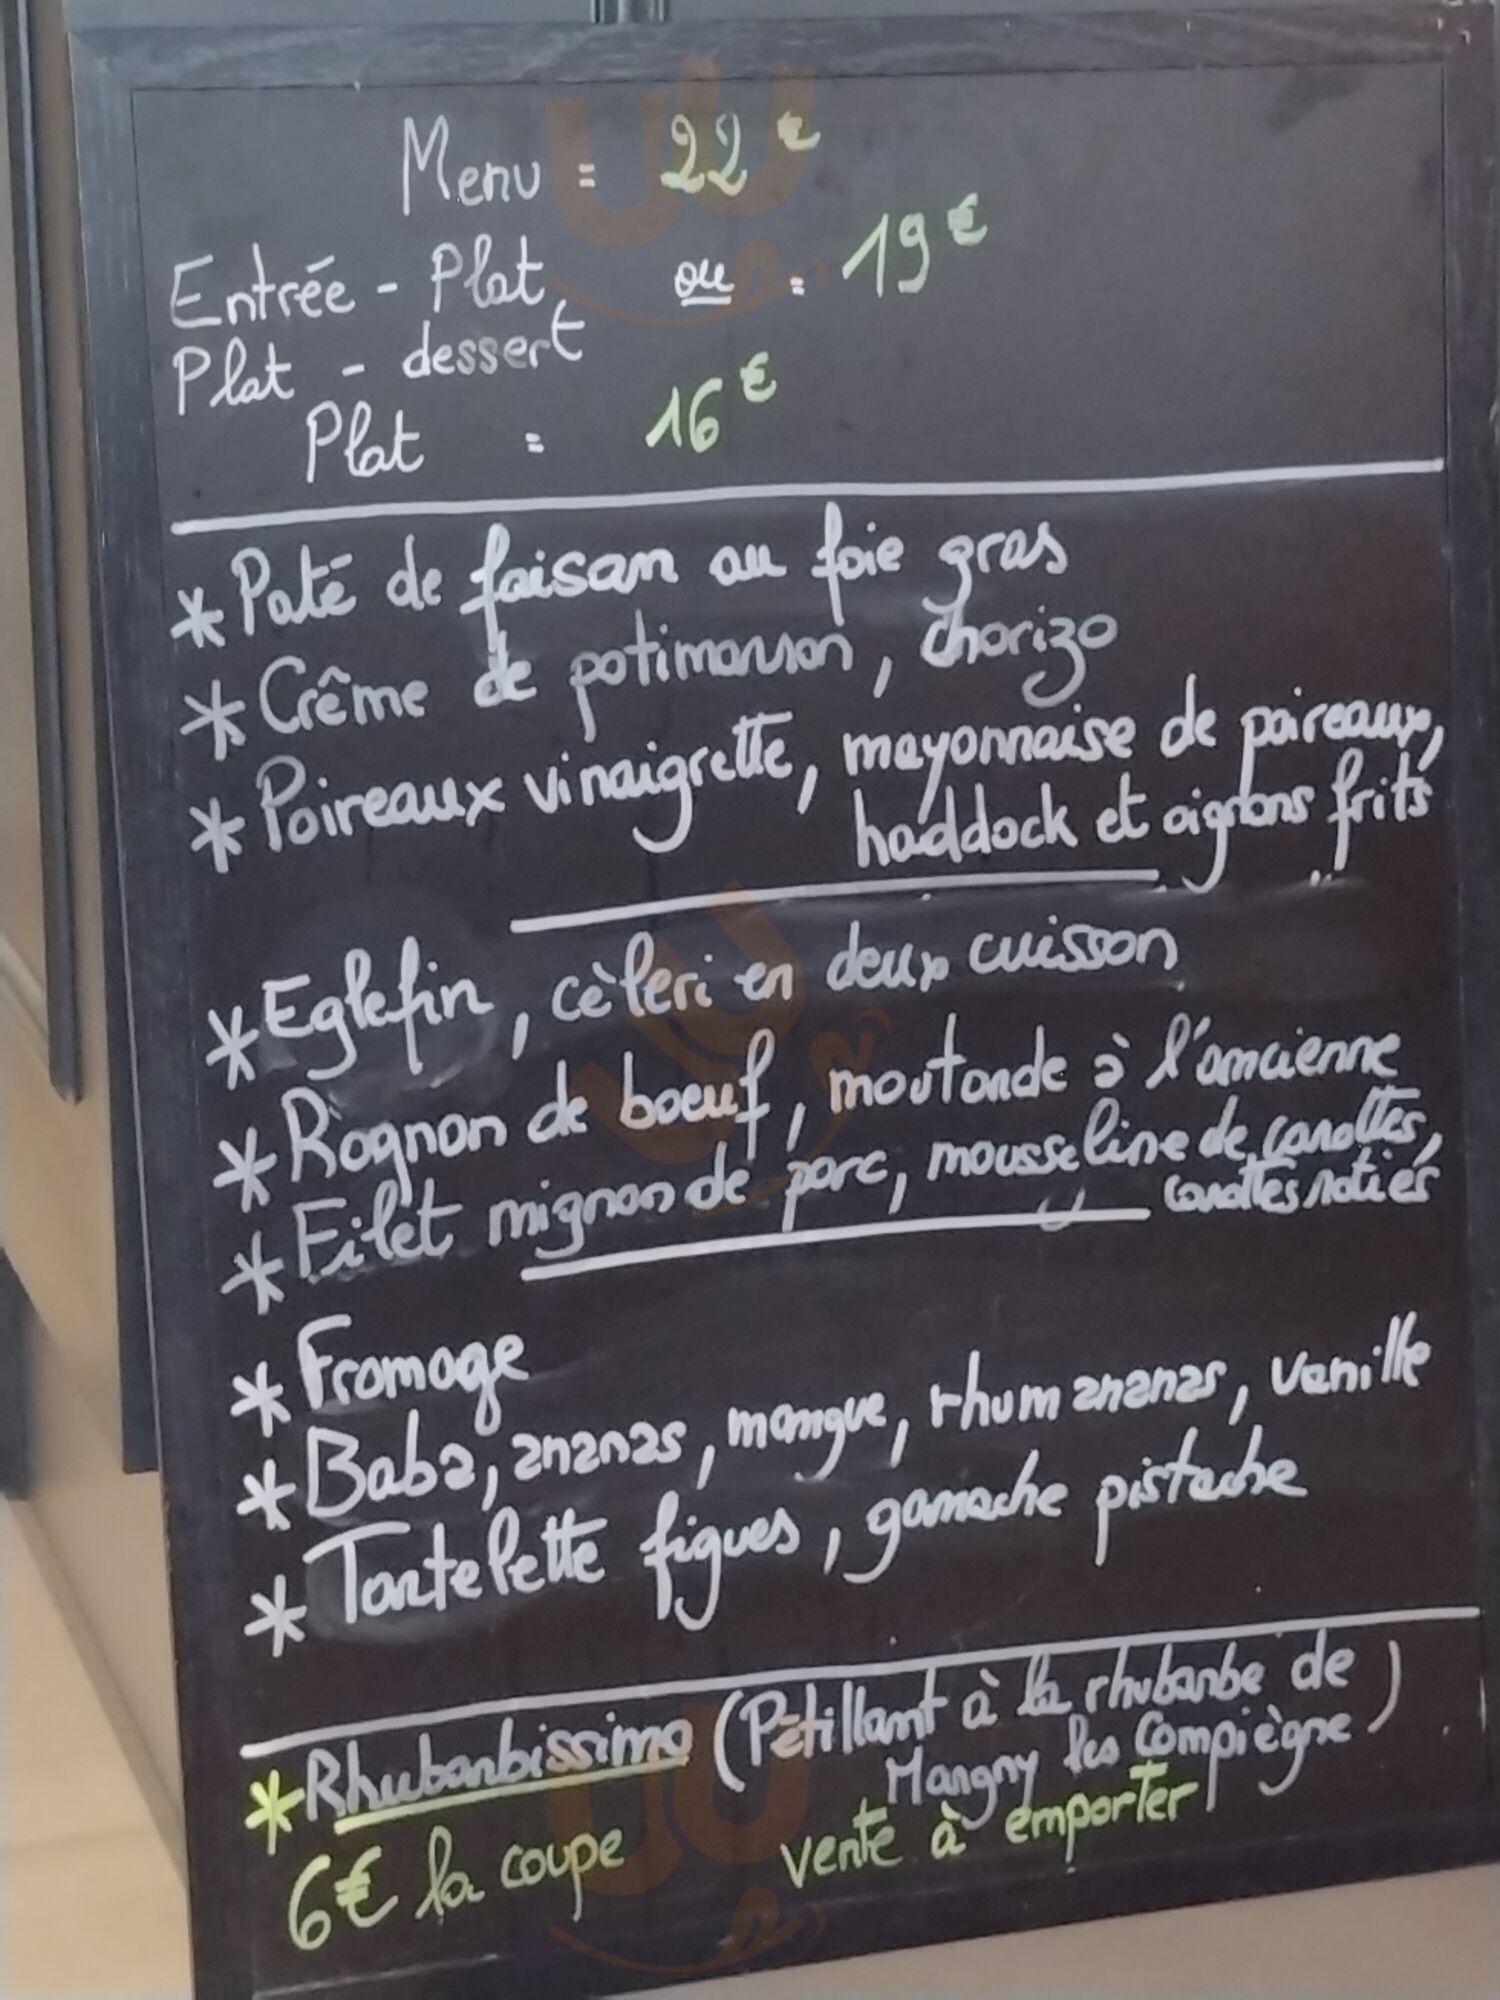 Menu = 22€
Entrée - Plat, ou = 19€
Plat - dessert
Plat = 16€
* Paté de faisan au foie gras
* Crême de potimarron, chorizo
* Poireaux vinaigrette, mayonnaise de poireaux,
haddock et oignons frits
* Eglefin, cèleri en deux cuisson
* Rognon de boeuf, moutarde à l'ancienne
* Filet mignon de porc, mousseline de carottes,
carottes roties
* Fromage
* Baba, ananas, mangue, rhum ananas, vanille
* Tartelette figues, ganache pistache
* Rhubarbissimo (Pétillant à la rhubarbe de
Margny les Compiègne)
6€ la coupe vente à emporter